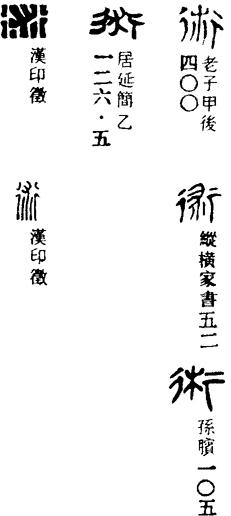 術
老子甲後
四〇〇
術
縱橫家書五二
術
孫臏一〇五
術
居延簡乙
一二六·五
術
漢印徵
術
漢印徵